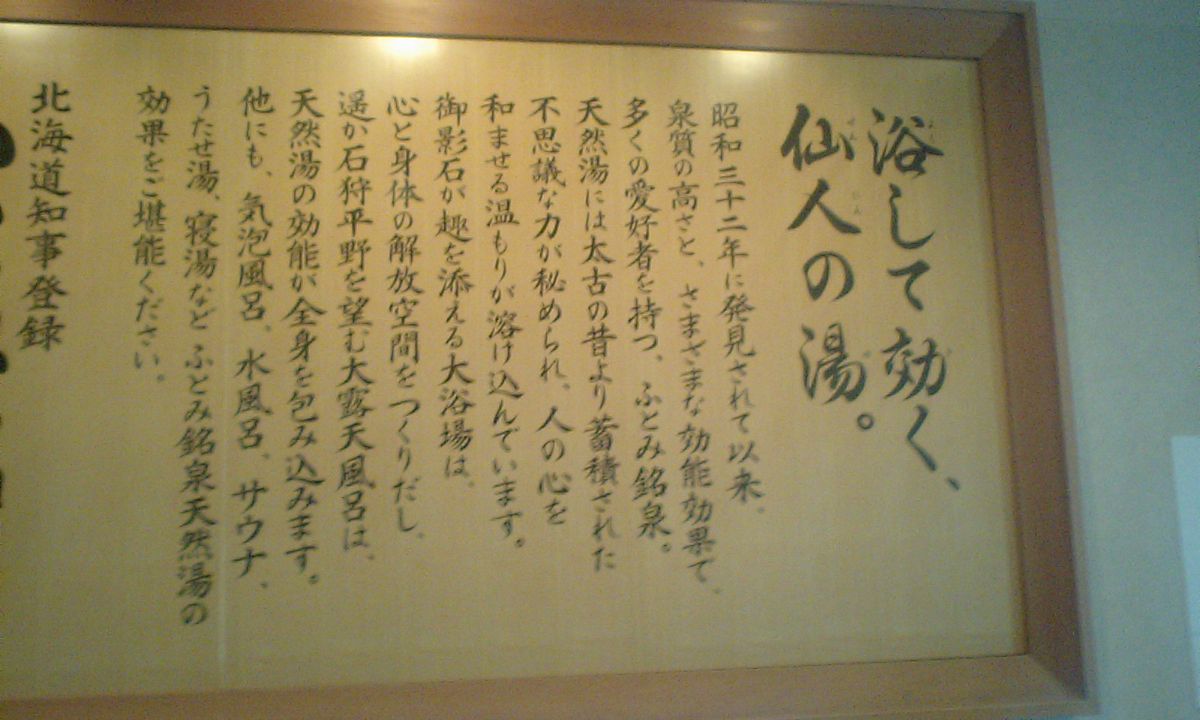 浴して効く、
仙人の湯。
昭和三十二年に発見されて以来、
泉質の高さと、さまざまな効能効果で、
多くの愛好者を持つ、ふとみ銘泉。
天然湯には太古の昔より蓄積された
不思議な力が秘められ、人の心を
和ませる温もりが溶け込んでいます。
御影石が趣を添える大浴場は、
心と身体の解放空間をつくりだし、
遥か石狩平野を望む大露天風呂は、
天然湯の効能が全身を包み込みます。
他にも、気泡風呂、水風呂、サウナ、
うたせ湯、寝湯など ふとみ銘泉天然湯の
効果をご堪能ください。
北海道知事登録